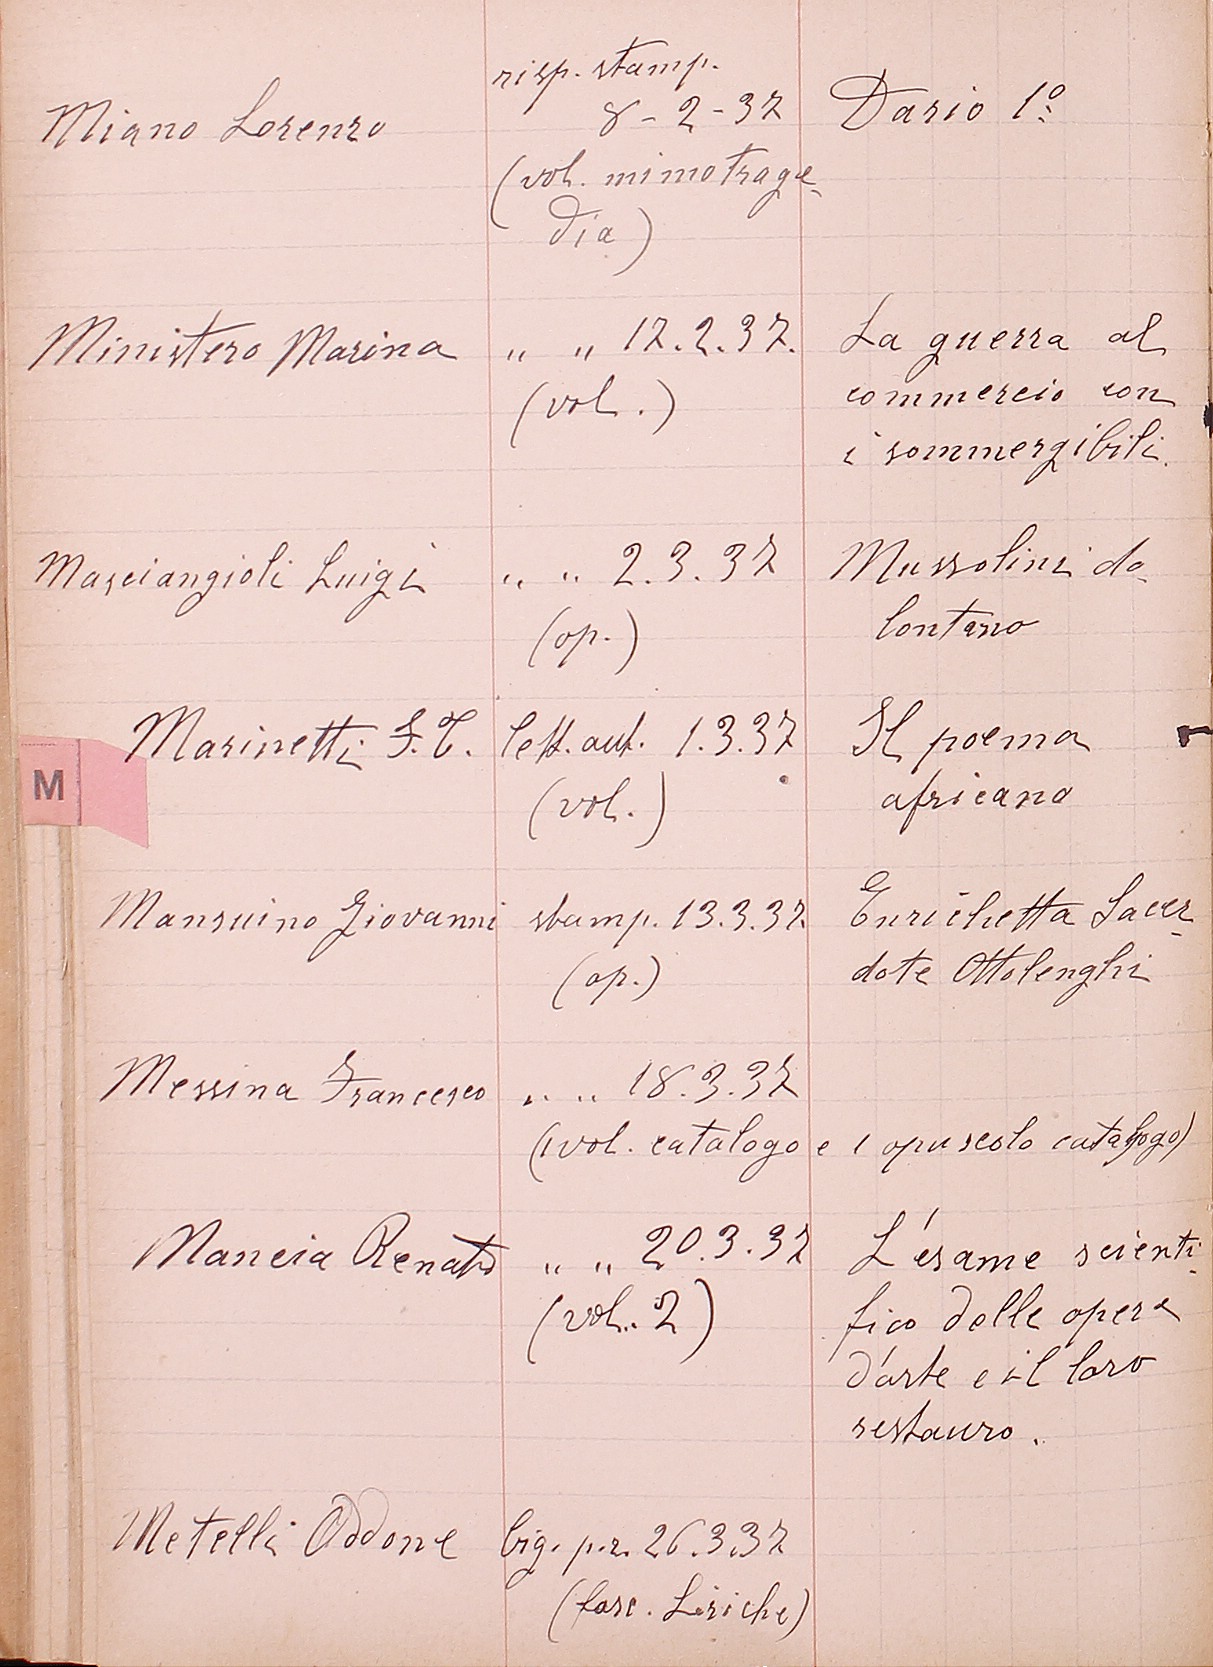 risp. stamp.
Miano Lorenzo 8-2-37 Dario 1º
(vol. mimotrage-
dia)
Ministero Marina " " 12.2.37. La guerra al
(vol.) commercio con
i sommergibili.
Masciangioli Luigi " " 2.3.37 Mussolini da
(op.) lontano
Marinetti F.T. lett. aut. 1.3.37 Il poema
M
(vol.) africano
Mansuino Giovanni stamp. 13.3.37. Enrichetta Sacer-
(op.) dote Ottolenghi
Messina Francesco " " 18.3.37
(1 vol. catalogo e 1 opuscolo catalogo)
Mancia Renato " " 20.3.37 L'esame scienti-
(vol. 2) fico delle opere
d'arte e il loro
restauro.
Metelli Oddone big. p.r. 26.3.37
(fasc. Liriche)